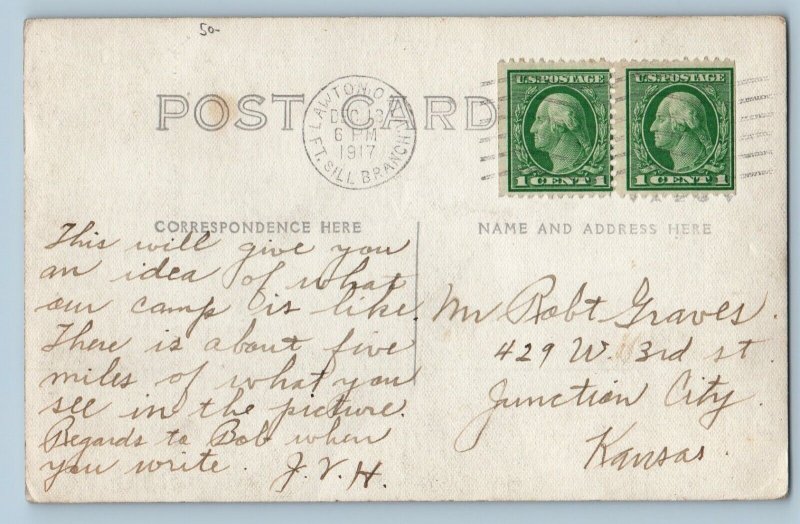 50-
POST CARD
LAWTON, O
DEC
6 PM
1917
FT. SILL BRANCH
U.S. POSTAGE
1 CENT 1
U.S. POSTAGE
1 CENT 1
CORRESPONDENCE HERE
This will give you
an idea of what
our camp is like.
There is about five
miles of what you
see in the picture.
Regards to Bob when
you write. J.V.H.
NAME AND ADDRESS HERE
Mr Robt Graves.
429 W. 3rd st.
Junction City.
Kansas.